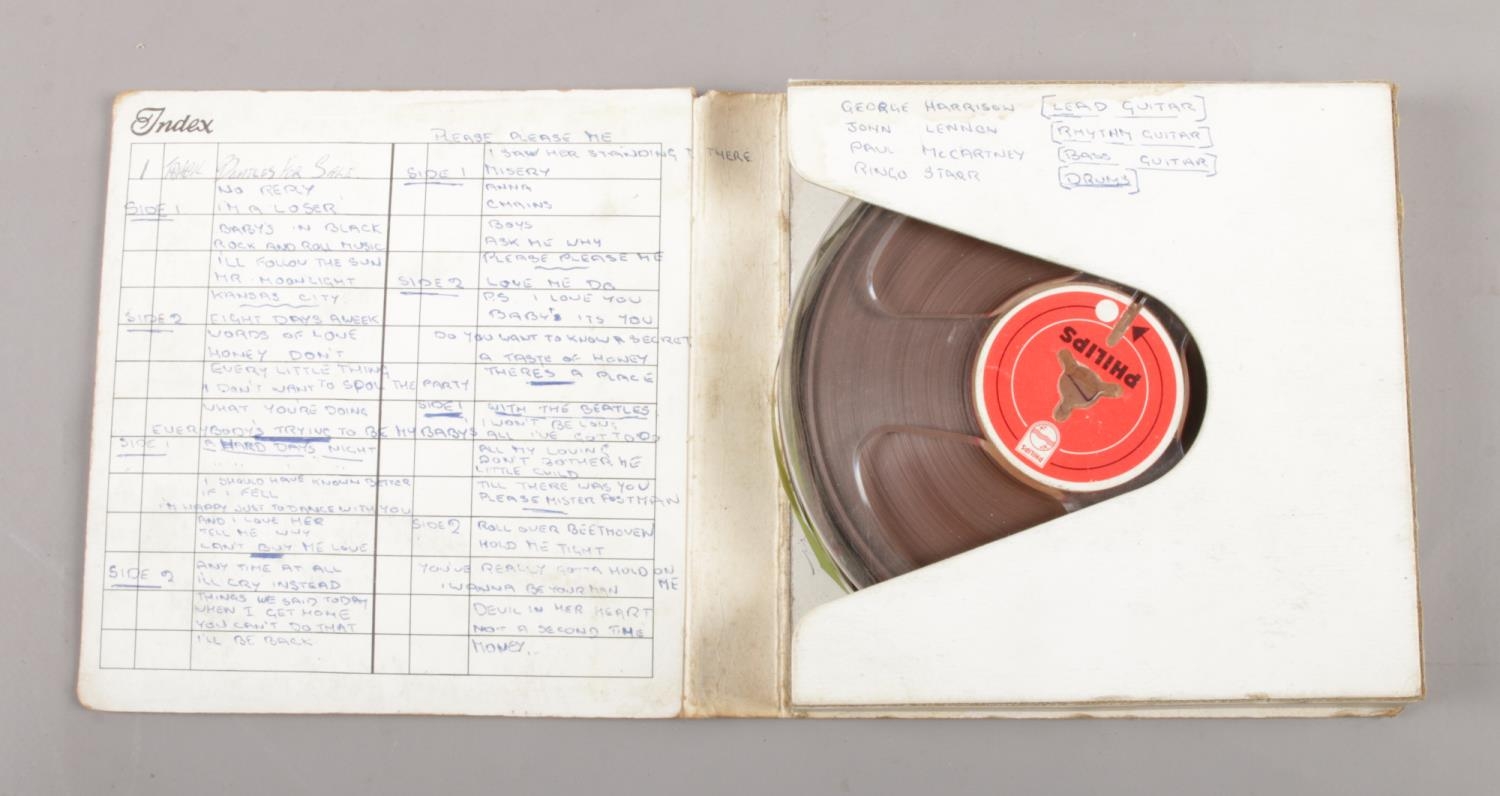 Index
1
BEATLES FOR SALE
NO REPLY
SIDE 1 I'M A LOSER
BABYS IN BLACK
ROCK AND ROLL MUSIC
I'LL FOLLOW THE SUN
MR. MOONLIGHT
KANSAS CITY.
SIDE 2 EIGHT DAYS A WEEK
WORDS OF LOVE
HONEY DON'T
EVERY LITTLE THING
I DON'T WANT TO SPOIL THE PARTY
WHAT YOU'RE DOING
EVERYBODYS TRYING TO BE MY BABY
SIDE 1 A HARD DAYS NIGHT
I SHOULD HAVE KNOWN BETTER
IF I FELL
I'M HAPPY JUST TO DANCE WITH YOU
AND I LOVE HER
TELL ME WHY
CAN'T BUY ME LOVE
SIDE 2 ANY TIME AT ALL
I'LL CRY INSTEAD
THINGS WE SAID TODAY
WHEN I GET HOME
YOU CAN'T DO THAT
I'LL BE BACK
PLEASE PLEASE ME
I SAW HER STANDING THERE
SIDE 1 MISERY
ANNA
CHAINS
BOYS
ASK ME WHY
PLEASE PLEASE ME
SIDE 2 LOVE ME DO
P.S I LOVE YOU
BABY'S ITS YOU
DO YOU WANT TO KNOW A SECRET
A TASTE OF HONEY
THERES A PLACE
SIDE 1 WITH THE BEATLES
I WON'T BE LONG
ALL I'VE GOT TO DO
ALL MY LOVING
DON'T BOTHER ME
LITTLE CHILD
TILL THERE WAS YOU
PLEASE MISTER POSTMAN
SIDE 2 ROLL OVER BEETHOVEN
HOLD ME TIGHT
YOU'VE REALLY GOTTA HOLD ON ME
I WANNA BE YOUR MAN
DEVIL IN HER HEART
NOT A SECOND TIME
MONEY..
GEORGE HARRISON [LEAD GUITAR]
JOHN LENNON [RHYTHM GUITAR]
PAUL McCARTNEY [BASS GUITAR]
RINGO STARR [DRUMS]
PHILIPS
PHILIPS